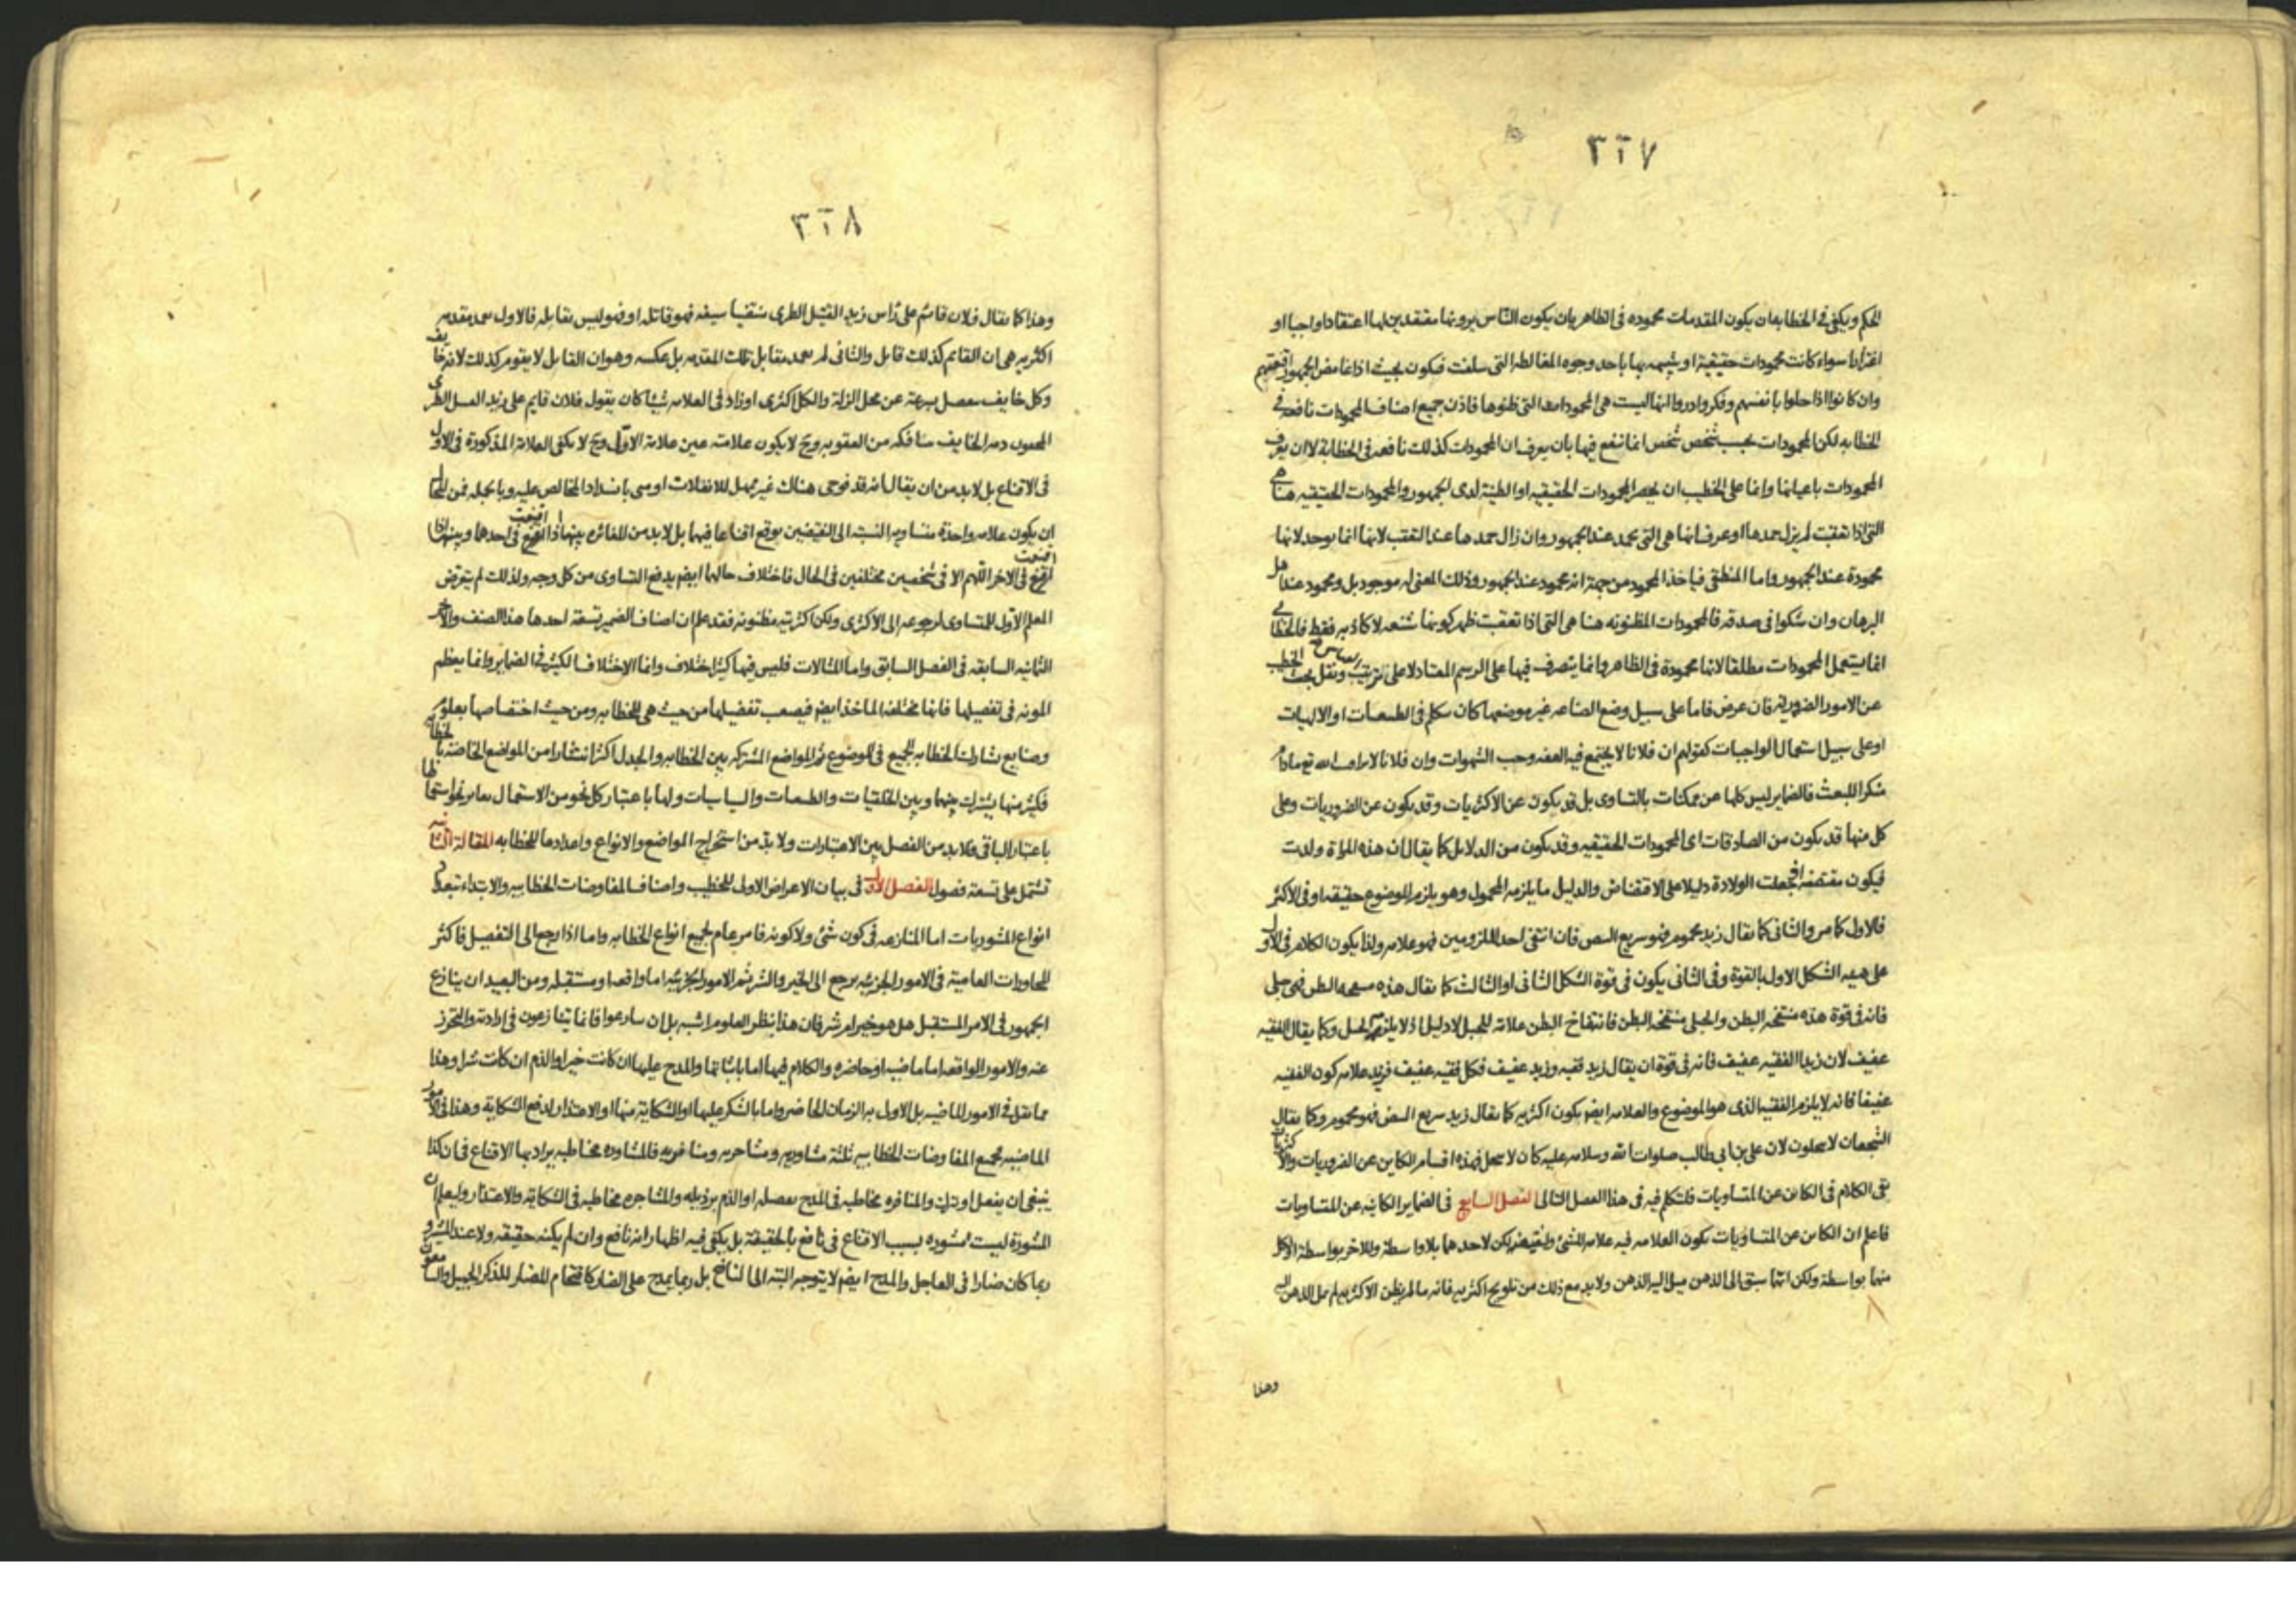 ٣٢٧
الحكم ويكفى فى الخطابة ان يكون المقدمات محموده فى الظاهر بان يكون الناس يرونها معتقدين لها اعتقادا واجبا او
سواء كانت محمودات حقيقية او يشبهه بها باحد وجوه المغالطه التى سلفت فيكون بحيث اذا الجمهور
وان كانوا اذا خلوا بانفسهم وفكروا دروا انها ليست هى المحمودات التى ظنوها فاذن جميع اصناف المحمودات نافعه فى
الخطابه لكن المحمودات بحسب شخص شخص انما تنفع فيها بان يعرف ان المحمودات كذلك نافعه فى الخطابة لا ان يعرف
المحمودات باعيانها وانما على الخطيب ان يحصر المحمودات الحقيقيه او الظنية لدى الجمهور والمحمودات الحقيقيه هنا هى
التى اذا تعقبت لم يزل حمدها او عرف انها هى التى تحمد عند الجمهور وان زال حمدها عند التعقب لانها انما يوجد لانها
محمودة عند الجمهور واما المنطقى فياخذ المحمود من جهة انه محمود عند الجمهور وذلك المعنى له موجود بل ومحمود عند اهل
البرهان وان شكوا فى صدقه فالمحمودات المظنونه هنا هى التى اذا تعقبت ظهر كونها شنعه لا كاذبه فقط فالخطابى
انما يستعمل المحمودات مطلقا لانها محمودة فى الظاهر وانما يتصرف فيها على الرسم المعتاد لا على ترتيب ونقل بحث الخطيب
عن الامور الضرورية فان عرض فاما على سبيل وضع الصناعه غير موضعها كان يتكلم فى الطبيعيات او الالهيات
او على سبيل استعمال الواجبات كقولهم ان فلانا لا يجتمع فيه العفه وحب الشهوات وان فلانا لا يراقب الله تع مادام
منكرا للبعث فالضماير ليس كلها عن ممكنات بالتساوى بل قد يكون عن الاكثريات وقد يكون عن الضروريات وعلى
كل منها قد يكون من الصادقات اى المحمودات الحقيقيه وقد يكون من الدلايل كما يقال ان هذه المراة ولدت
فيكون مفتضه اذ جعلت الولادة دليلا على الافتضاض والدليل ما يلزمه المحمول وهو يلزم الموضوع حقيقه او فى الاكثر
فالاول كما مر والثانى كما يقال زيد محموم فهو سريع النبض فان انتفى احد اللزومين فهو علامه ولذا يكون الكلام فى الاول
على هيئه الشكل الاول بالقوة وفى الثانى يكون فى قوة الشكل الثانى او الثالث كما يقال هذه منتفخه البطن فهى حبلى
فانه فى قوة هذه منتفخه البطن والحبلى منتفخه البطن فانتفاخ البطن علامة للحبل لا دليل اذ لا يلزمه الحبل وكما يقال الفقيه
عفيف لان زيدا الفقيه عفيف فانه فى قوة ان يقال زيد فقيه وزيد عفيف فكل فقيه عفيف فزيد علامه كون الفقيه
عفيفا فانه لا يلزم الفقيه الذى هو الموضوع والعلامه ايضا يكون اكثريه كما يقال زيد سريع النبض فهو محموم وكما يقال
الشجعان لا يبخلون لان على بن ابى طالب صلوات الله وسلامه عليه كان لا يبخل فهذه اقسام الكاين عن الضروريات والاكثريات
بقى الكلام فى الكاين عن المتساويات فلنتكلم فيه فى هذا الفصل التالى الفصل السابع فى الضماير الكاينه عن المتساويات
فاعلم ان الكاين عن المتساويات يكون العلامه فيه علامه للشئ ولنقيضه لكن لاحدهما بلا واسطة وللاخر بواسطة او لكل
منهما بواسطة ولكن ايهما سبق الى الذهن ميل اليه الذهن ولابد مع ذلك من تلويح اكثريه فانه ما لم يظن الاكثريه لم يمل الذهن اليه
وهذا
٣٢٨
وهذا كما يقال فلان قائم على راس زيد القتيل الطرى منتضيا سيفه فهو قاتله او فهو ليس بقاتله فالاول بعد مقدمه
اكثريه هى ان القايم كذلك قاتل والثانى لم بعد مقابل تلك المقدمه بل عكسه وهو ان القاتل لا يقوم كذلك لانه خايف
وكل خايف ينفصل بسرعة عن محل الزلة والكل اكثرى او زاد فى العلامه شيئا كان يقول فلان قايم على زيد القتيل الطرى
دمه الخايف من العقوبه وح لا يكون علامته عين علامة الاول وح لا يكفى العلامة المذكورة فى الاول
فى الاقناع بل لابد من ان يقال انه قد فوجى هناك غير ممهل للانفلات او منى بانسداد المخالص عليه وبالجمله فمن المحال
ان يكون علامه واحدة متساويه النسبه الى النقيضين يوقع اقناعا فيهما بل لابد من المغائره بينهما اذا اقنعت فى احدها وبينها اذا
اقنعت فى الاخر اللهم الا فى شخصين مختلفين فى الحال فاختلاف حالهما ايضا يدفع التساوى من كل وجه ولذلك لم يتعرض
المعلم الاول للمتساوى لرجوعه الى الاكثرى ولكن اكثريته مظنونه فقد علم ان اصناف الضمير تسعة احدها هذا الصنف والاخر
الثمانيه السابقه فى الفصل السابق واما المثالات فليس فيها كثير اختلاف وانما الاختلاف الكثير فى الضماير وانما يعظم
المونه فى تفصيلها فانها مختلفه الماخذ ايضا فيصعب تفصيلها من حيث هى للخطابه ومن حيث اختصاصها بعلوم
وصنايع تشارك الخطابه للجميع فى الموضوع ثم المواضع المشتركه بين الخطابه والجدل اكثر انتشارا من المواضع الخاصة بالخطابه
فكثير منها يشترك بينها وبين الخلقيات والطبيعيات والسياسات ولها باعتبار كل نحو من الاستعمال يغاير نحو استعمالها
باعتبار الباقى فلابد من الفصل بين الاعتبارات ولا بد من استخراج المواضع والانواع واعدادها للخطابه المقالة الثانيه
تشتمل على تسعة فصول الفصل الاول فى بيان الاغراض الاولى للخطيب واصناف المفاوضات الخطابيه والابتداء بتعديد
انواع المشوريات اما المنازعه فى كون شئ ولا كونه فامر عام لجميع انواع الخطابه واما اذا رجع الى التفصيل فاكثر
المحاورات العامية فى الامور الجزئيه يرجع الى الخير والشر ثم الامور الجزئيه اما واقعه او مستقبله ومن البعيد ان ينازع
الجمهور فى الامر المستقبل هل هو خير ام شر فان هذا بنظر العلوم اشبه بل ان سارعوا فانما يتنازعون فى ارادته والتحرز
عنه والامور الواقعه اما ماضيه او حاضره والكلام فيها اما باثباتها والمدح عليها ان كانت خيرا والذم ان كانت شرا وهذا
مما يقل فى الامور الماضيه بل الاولى به الزمان الحاضر واما بالشكر عليها او الشكاية منها او الاعتذار لدفع الشكاية وهذا فى الامور
الماضيه فجميع المفاوضات الخطابيه ثلثة مشاوريه ومشاجريه ومنافريه فالمشاوره مخاطبه يراد بها الاقناع فى ان كذا
ينبغى ان يفعل او يترك والمنافره مخاطبه فى المدح بفضيله او الذم برذيله والمشاجره مخاطبه فى الشكاية والاعتذار وليعلم ان
المشورة ليست مشوره بسبب الاقناع فى نافع بالحقيقة بل يكفى فيه اظهار انه نافع وان لم يكنه حقيقه ولا عند المشير و
ربما كان ضارا فى العاجل والمدح ايضا لا يتوجه البته الى النافع بل ربما يمدح على الضار كاقتحام المضار للذكر الجميل